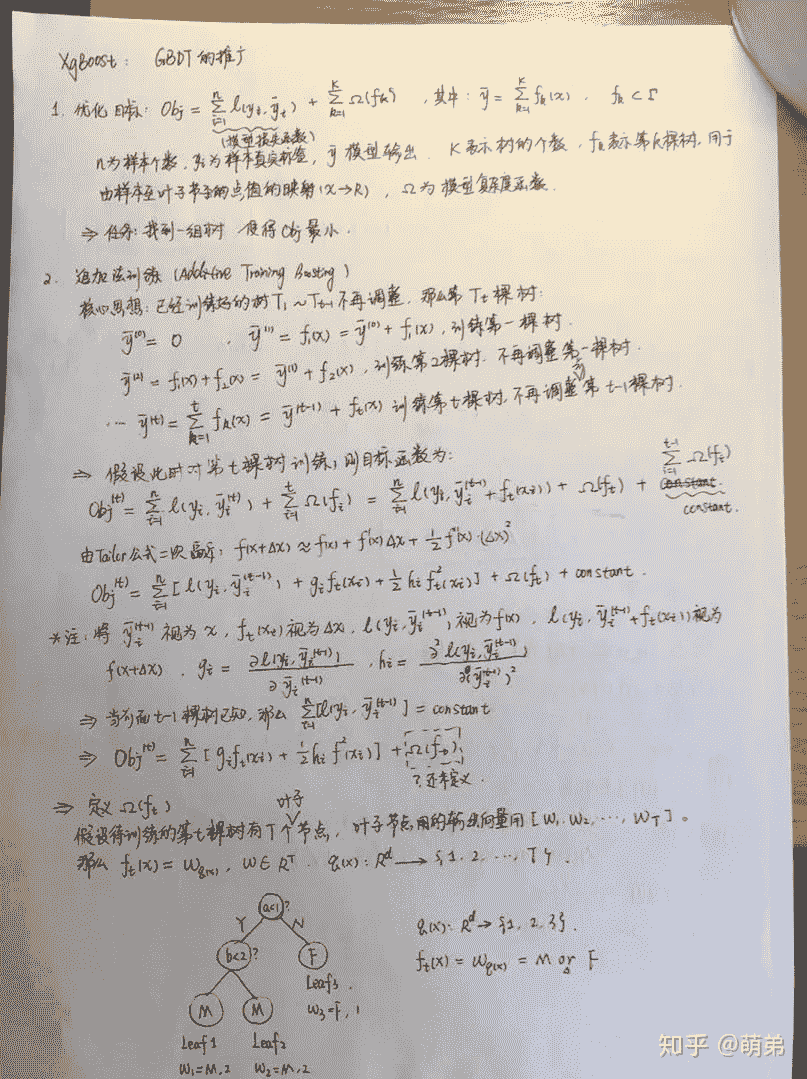 XgBoost: GBDT的推广
1. 优化目标: Obj = Σ_{i=1}^{n} l(yi, ȳi) + Σ_{k=1}^{K} Ω(fk), 其中: ȳ = Σ_{k=1}^{K} fk(x),
(模型损失函数)
n为样本个数, yi为样本真实标签, ȳ 模型输出. K表示树的个数, fk表示第k棵树, 用于
由样本到叶子节点的值的映射(x→R), Ω为模型复杂度函数.
⇒ 任务: 找到一组树 使得Obj最小.
2. 追加法训练 (Additive Training Boosting)
核心思想: 已经训练好的树T1~Tt-1不再调整, 那么第Tt棵树:
ȳ^(0) = 0 , ȳ^(1) = f1(x) = ȳ^(0) + f1(x), 训练第一棵树.
ȳ^(2) = f1(x) + f2(x) = ȳ^(1) + f2(x), 训练第2棵树. 不再调整第一棵树.
... ȳ^(t) = Σ_{k=1}^{t} fk(x) = ȳ^(t-1) + ft(x) 训练第t棵树, 不再调整第t-1棵树.
⇒ 假设此时对第t棵树训练, 则目标函数为:
Obj^(t) = Σ_{i=1}^{n} l(yi, ȳi^(t)) + Σ_{i=1}^{t} Ω(fi) = Σ_{i=1}^{n} l(yi, ȳi^(t-1) + ft(xi)) + Ω(ft) + Σ_{i=1}^{t-1} Ω(fi)
constant.
由Tailor公式二次展开: f(x+Δx) ≈ f(x) + f'(x)Δx + ½f''(x)·(Δx)²
Obj^(t) = Σ_{i=1}^{n} [l(yi, ȳi^(t-1)) + gi ft(xi) + ½hi ft²(xi)] + Ω(ft) + constant.
*注: 将 ȳi^(t-1) 视为x, ft(xi)视为Δx, l(yi, ȳi^(t-1))视为f(x), l(yi, ȳi^(t-1) + ft(xi))视为
f(x+Δx). gi = ∂l(yi, ȳi^(t-1)) / ∂ȳi^(t-1) , hi = ∂²l(yi, ȳi^(t-1)) / ∂(ȳi^(t-1))²
⇒ 当前面t-1棵树已知, 那么 Σ_{i=1}^{n} [l(yi, ȳi^(t-1)] = constant
⇒ Obj^(t) = Σ_{i=1}^{n} [gi ft(xi) + ½hi f²(xi)] + Ω(ft)
? 还未定义.
⇒ 定义Ω(ft)
假设待训练的第t棵树有T个叶子节点, 叶子节点的输出向量用 [W1, W2, ..., WT].
那么 ft(x) = Wq(x), W∈R^T. q(x): R^d → {1, 2, ..., T}.
a<1?
Y N
b<2? F
Leaf3.
W3=F, 1
M M
Leaf1 Leaf2
W1=M, 2 W2=M, 2
q(x): R^d → {1, 2, 3}.
ft(x) = Wq(x) = M or F
知乎 @萌弟